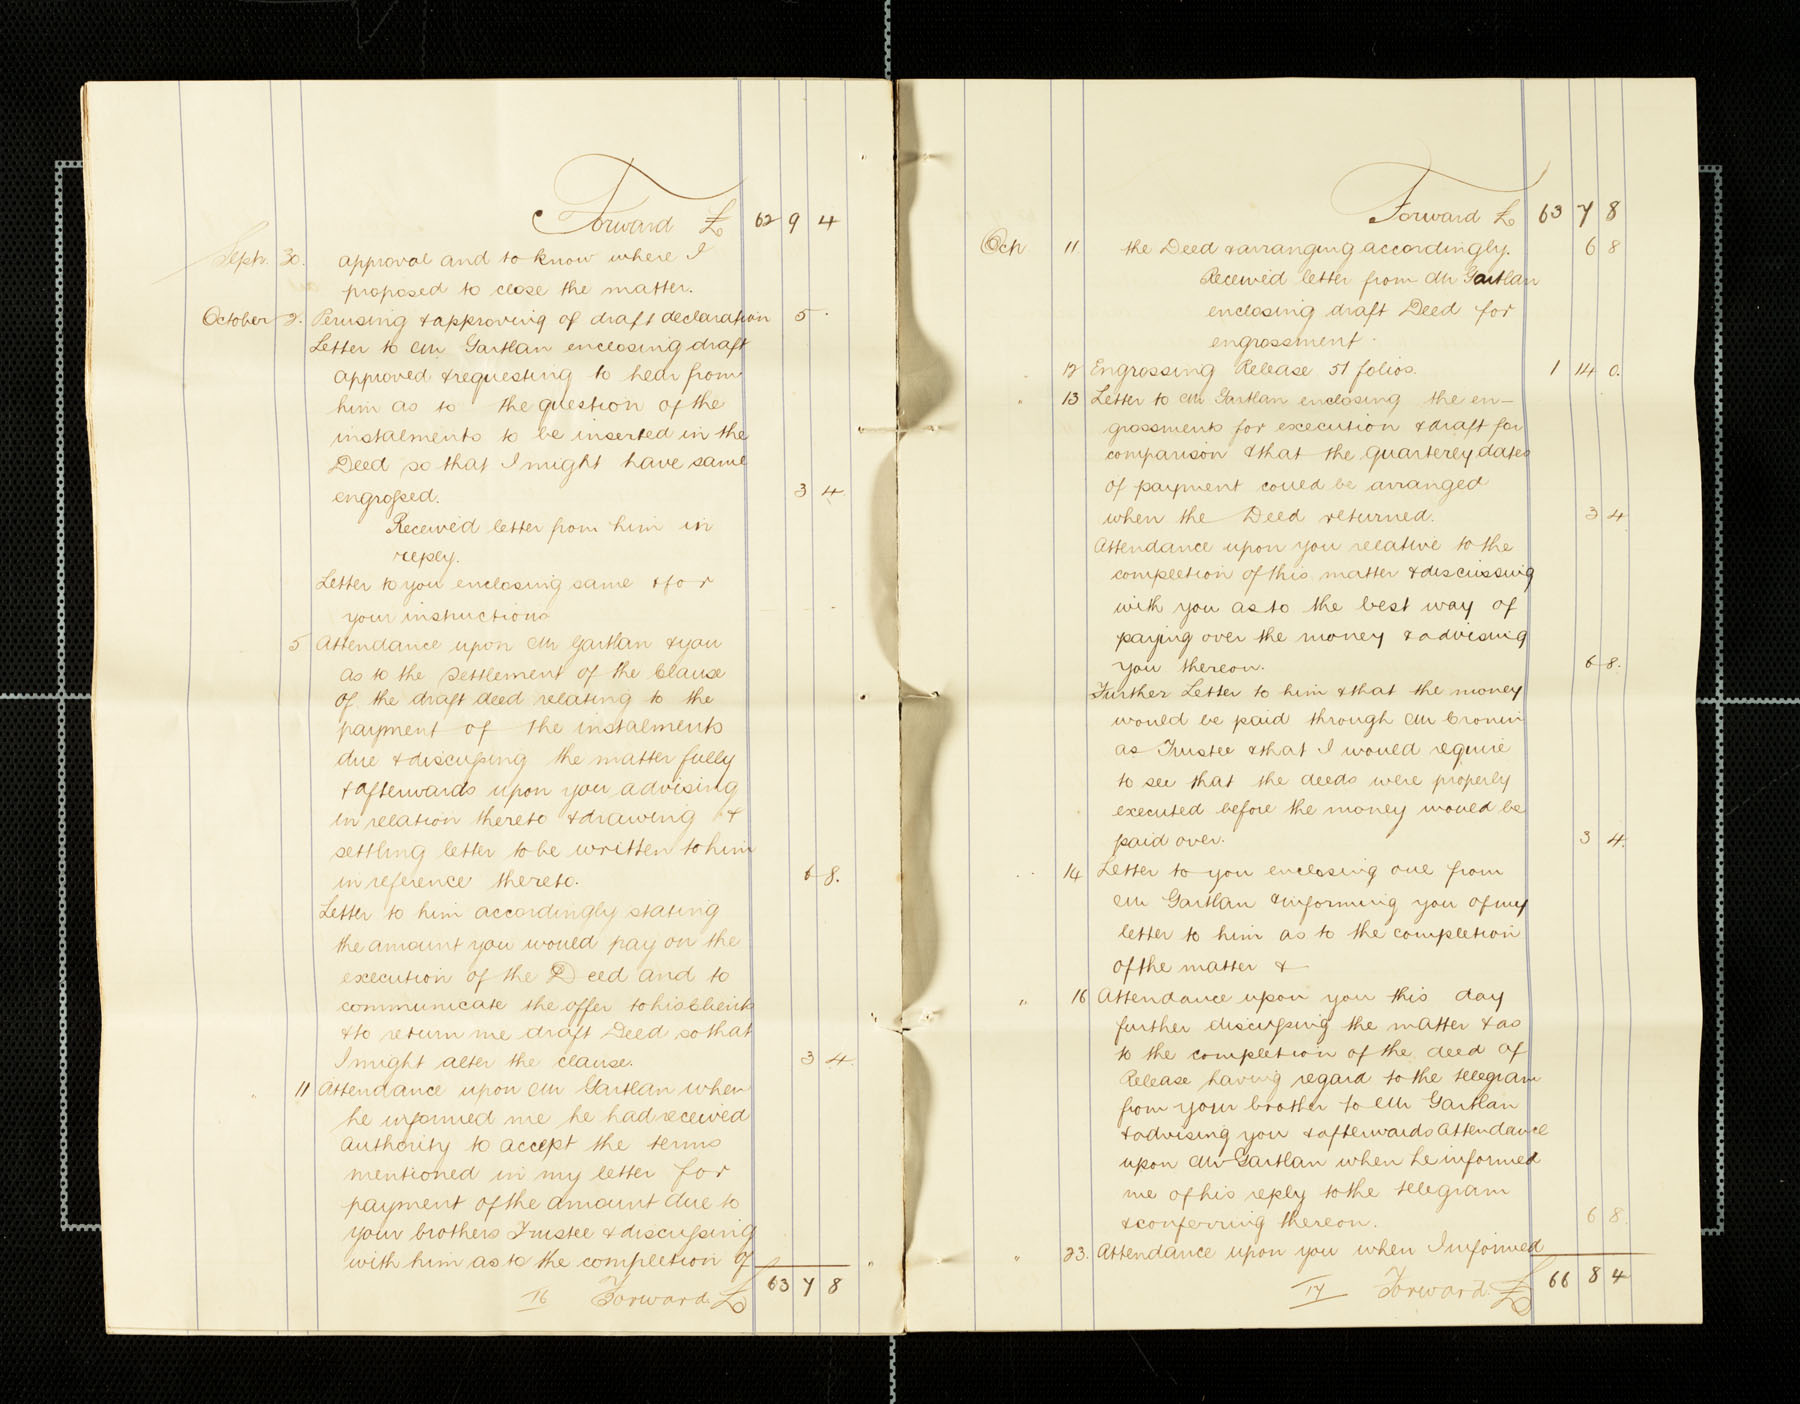 Forward £ 62 9 4
Septr. 30. approval and to know where I
proposed to close the matter.
October 2. Perusing & approving of draft declaration 5 .
Letter to Mr Gartlan enclosing draft
approved & requesting to hear from
him as to the question of the
instalments to be inserted in the
Deed so that I might have same
engrossed. 3 4
Received letter from him in
reply.
Letter to you enclosing same & for
your instructions
5 Attendance upon Mr Gartlan & you
as to the settlement of the Clause
of the draft deed relating to the
payment of the instalments
due & discussing the matter fully
& afterwards upon you advising
in relation thereto & drawing &
settling letter to be written to him
in reference thereto. 6 8.
Letter to him accordingly stating
the amount you would pay on the
execution of the Deed and to
communicate the offer to his Clients
& to return me draft Deed so that
I might alter the clause. 3 4
" 11 Attendance upon Mr Gartlan when
he informed me he had received
authority to accept the terms
mentioned in my letter for
payment of the amount due to
your brothers Trustee & discussing
with him as to the completion of
16 Forward £ 63 7 8
Forward £ 63 7 8
Oct 11 the Deed & arranging accordingly. 6 8
Received letter from Mr Gartlan
enclosing draft Deed for
engrossment.
12 Engrossing Release 51 folios. 1 14 0.
" 13 Letter to Mr Gartlan enclosing the en-
grossments for execution & draft for
comparison & that the quarterly dates
of payment could be arranged
when the Deed returned. 3 4
Attendance upon you relative to the
completion of this matter & discussing
with you as to the best way of
paying over the money & advising
you thereon. 6 8.
Further Letter to him & that the money
would be paid through Mr Cronin
as Trustee & that I would require
to see that the deeds were properly
executed before the money would be
paid over. 3 4.
" 14 Letter to you enclosing one from
Mr Gartlan & informing you of my
letter to him as to the completion
of the matter &
" 16 Attendance upon you this day
further discussing the matter & as
to the completion of the deed of
Release having regard to the telegram
from your brother to Mr Gartlan
& advising you & afterwards Attendance
upon Mr Gartlan when he informed
me of his reply to the telegram
& conferring thereon. 6 8.
" 23. Attendance upon you when I informed
17 Forward £ 66 8 4